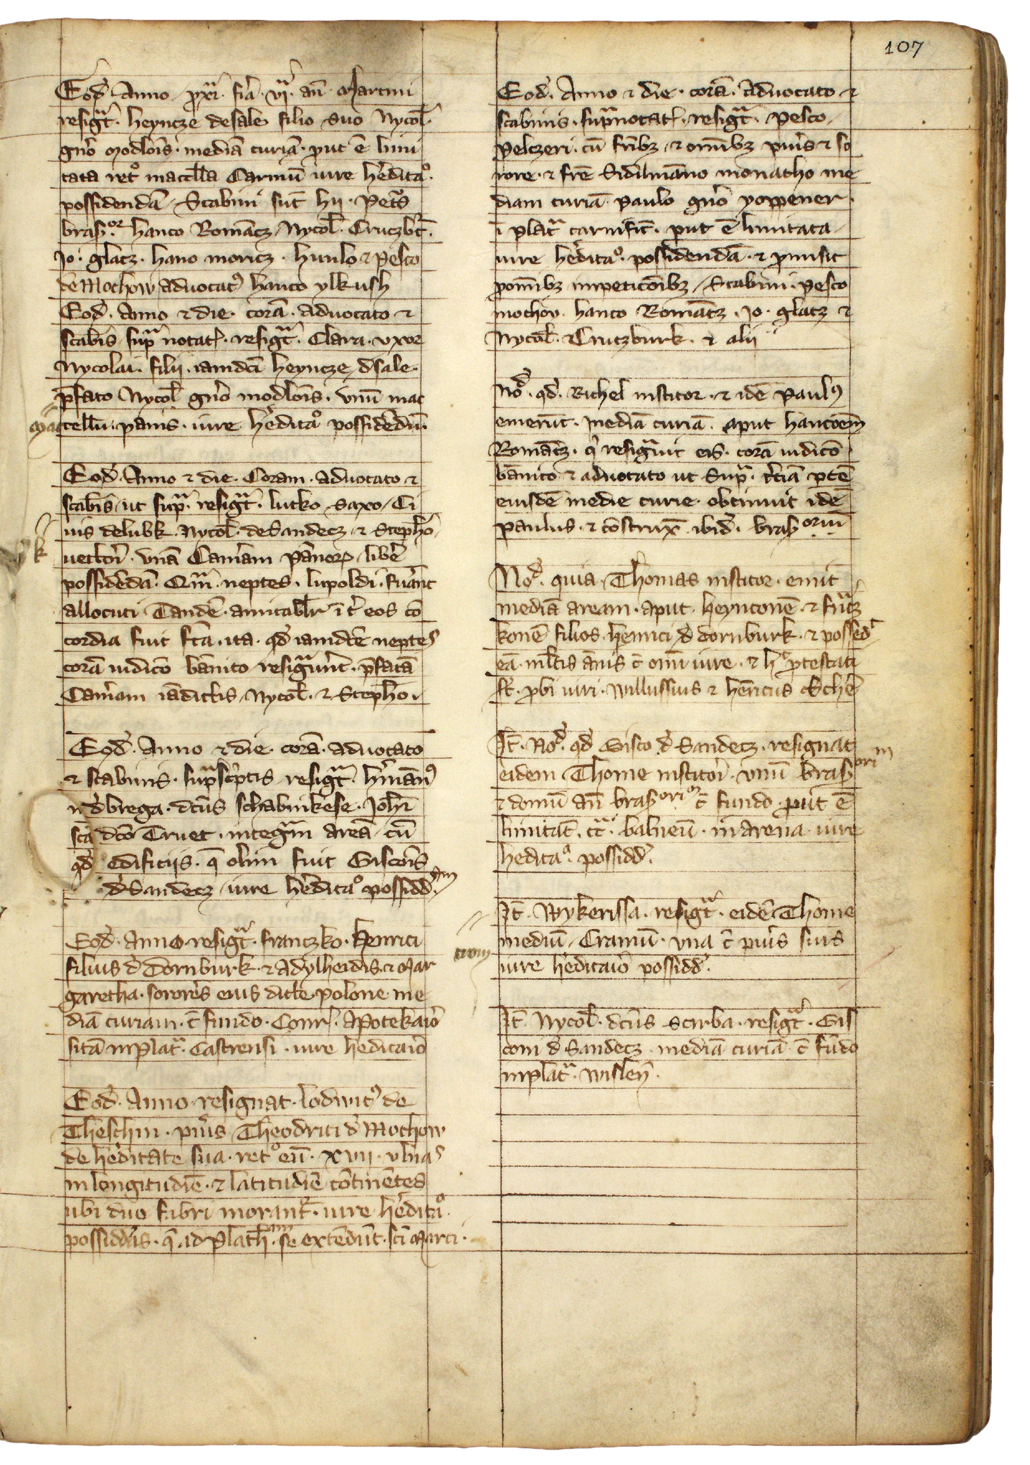 107
Eod̄. Anno. prx̄i. fīa. vī. an̄. Martini
resigt̄. heyncze desale. filio suo Nycol̄.
gn̄o Modlois. mediā curiā. put ē limi
tata ret̊ macell̄a Carniū iure hēditaͦ.
possidendā. Scabini sūt hii. Petrˢ
brasͦʳ hanco Romācz. Nycol̄. Cruczb̄t.
Jo. glacz. hano moricz. hunlo & Pesco
de Mochow advocatꝰ hanco ylkush
Eod̄. Anno & die. corā. Advocato &
scabis sup̄ notat. resigt̄. Clara. vxor
Nycolai. filii. iamdc̄i heyncze d̄sale.
p̄fato Nycol̄ gn̄o modlois. vnū mac
macellū. panis. iure hēditaͦ possidēdū.
Eod̄. Anno & die. Coram. advocato &
scabīs. ut sup̄. resigt̄. lutko Saxo. Ci
uis delubk. Nycol̄. deSandecz. & Stepho
Cam̄am pānoꝝ. libē
possidēdā. Qm̄. neptes. lupoldi. fuāt
allocuti. Tandē. amicabl̄r īt eos cō
cordia fuit fc̄a. ita. qd̄ iamdc̄e neptes
corā iudico bānito resigūnt. p̄fatā
Cam̄am iādictis. Nycol̄. & Stepho.
Eod̄. Anno & die. corā. advocato
& scabinis. sup̄sc̄ptis resigt̄. hm̄anꝰ
d̄brega. dc̄us schabinkese. Joh̄i
dc̄o Cruet. integm̄ areā. cū
qd̄ edificiis. q̄ olim fuit Gisconis
d̄Sandecz. iure hēditaͦ possidd̄.
Eod̄. Anno. resigt̄. franczko. Henrici
filius d̄ Dornburk. & Adylheidis. & Mar
garetha. sorores eius dicte Polone me
diā curiam. c̄ fundo. Conr̄. Apotekaio
sitā inplat̄. Castrensi. iure heditaio
Eod̄. Anno. resignat. lodwicꝰ de
Theschin. pūis. Theodrici d̄ Mochow
de hēditate sua. retͦ eū. xviii. vlnas
in longitudiē. & latitudiē cōtinētes
ubi duo fabri morant̄. iure hēditaͦ.
possidd̄is. q̄. ad plath̄. se extēdūt. sc̄i Marci.
Eod̄. Anno & die. corā. Advocato &
scabinis. sup̄notat. resigt̄. Pesco
Pelczeri. cū frībꝫ. & omībꝫ pūis & so
rore. & frē Sidilmāno monacho me
diam curiā. Paulo gn̄o yoppener.
ī plat̄ carnific̄. put ē limitata.
iure hēditaͦ. possidendā. & pmisit
pomībꝫ impeticōibꝫ. Scabini. Pesco
mochov. hanco Romācz. Jo. glacz &
Nycol̄. Cruczburk. & alii
Nō. qd̄. Richel institor. & idē Paulꝰ
emerūt. mediā curiā. aput hancōem
Romācz. q̄ resigūit eis. corā iudicō
bānito & advocato ut sup̄. tc̄iā ptē
eiusdē medie curie. obtinuit idē
Paulus. & cōstruxt̄. ibid̄. brasoriū
Nō. quia. Thomas institor. emit
mediā aream. aput. heynconē. & frācz
konē filios. henrici d̄ dornburk. & possed̄
eā. ml̄tis ānis c̄ omī iure. & hͦ ptestati
st̄. pbi viri. Willussius & henricus
It̄. Nō. qd̄ Gisco d̄ Sandecz. resignat
eidem Thome institori. vnū brasoriū
& domū an̄ brasoriū c̄ fundo. put ē
limitat̄. ct̄a. balneū. in arena. iure
heditaͦ. possidd̄.
It̄. Wykerissa. resigt̄. eidē Thome
mediū. Cramū. vna c̄ pūis suis
iure hēditaiō possidd̄.
It̄. Nycol̄. dc̄us Scirba. resigt̄. Gis
coni d̄ Sandecz. mediā curiā. c̄ fūdo
inplat̄. Wislen̄.